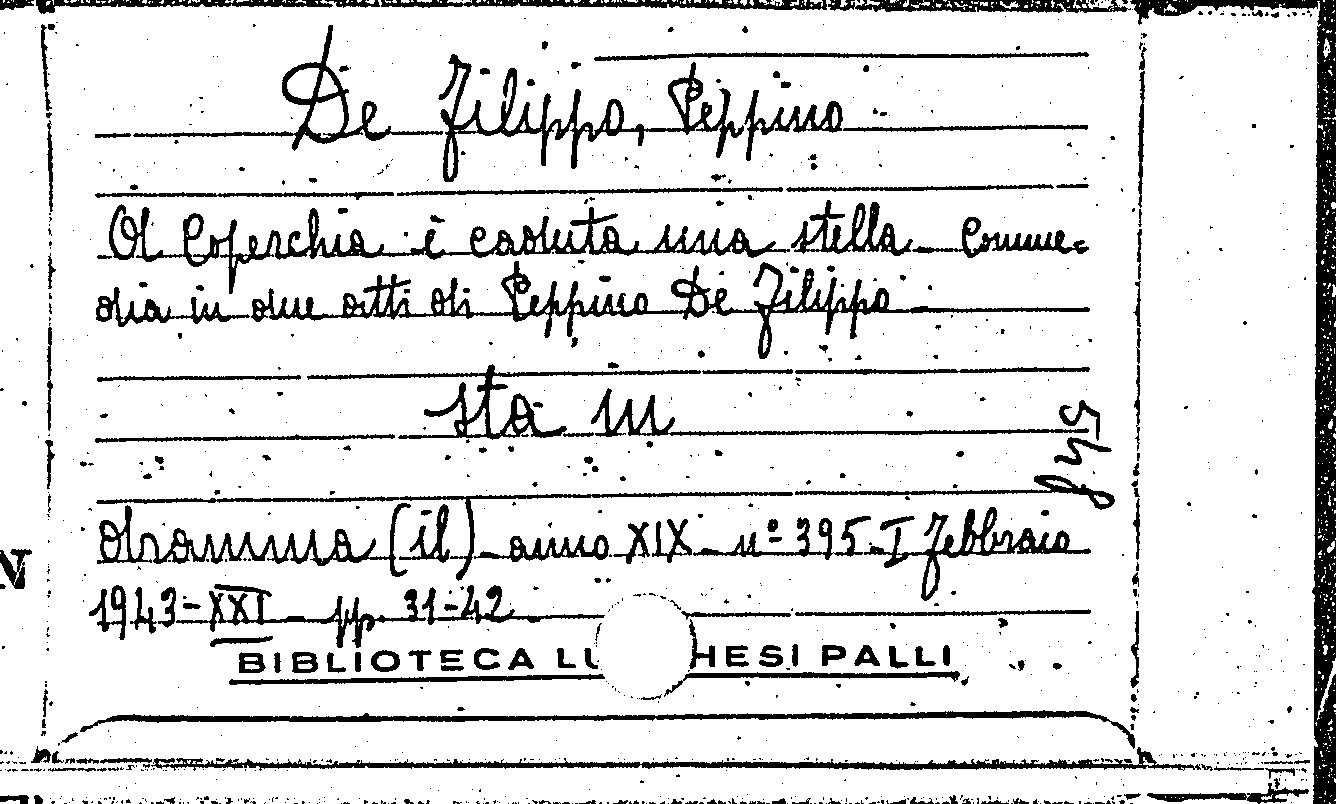 De Filippo, Peppino
A Coperchia è caduta una stella - Comme-
dia in due atti di Peppino De Filippo -
sta in
dramma (il) - anno XIX - nº 395 - I Febbraio
1943 - XXI - pp. 31-42 -
BIBLIOTECA LU HESI PALLI